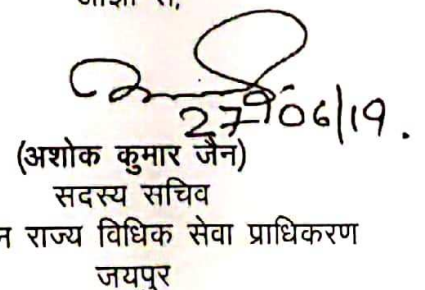 27/06/19.
(अशोक कुमार जैन)
सदस्य सचिव
राज्य विधिक सेवा प्राधिकरण
जयपुर